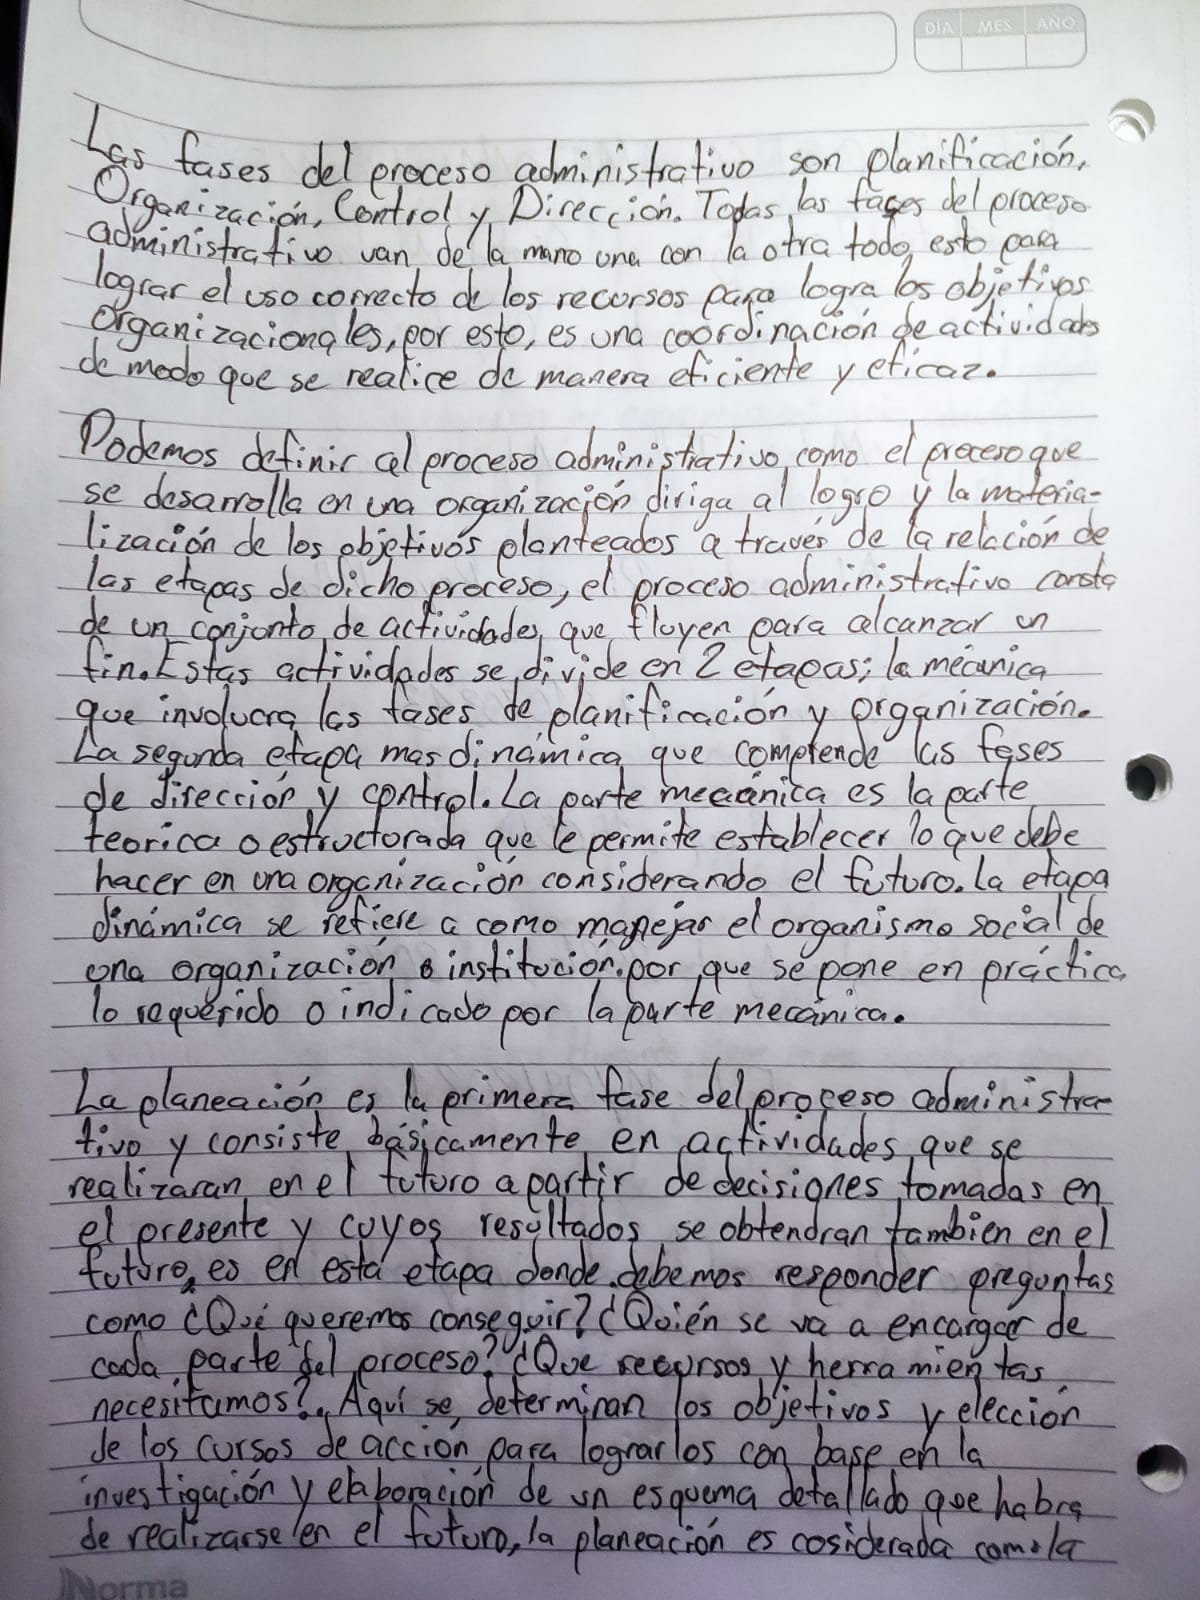 DÍA MES AÑO
Las fases del proceso administrativo son planificación,
Organización, Control y Dirección. Todas las fases del proceso
administrativo van de la mano una con la otra todo esto para
lograr el uso correcto de los recursos para logra los objetivos
organizacionales, por esto, es una coordinación de actividades
de modo que se realice de manera eficiente y eficaz.
Podemos definir al proceso administrativo como el proceso que
se desarrolla en una organización diriga al logro y la materia-
lización de los objetivos planteados a través de la relación de
las etapas de dicho proceso, el proceso administrativo consta
de un conjunto de actividades que fluyen para alcanzar un
fin. Estas actividades se divide en 2 etapas; la mecánica
que involucra las fases de planificación y organización.
La segunda etapa mas dinámica que comprende las fases
de dirección y control. La parte mecánica es la parte
teorica o estructurada que le permite establecer lo que debe
hacer en una organización considerando el futuro. La etapa
dinámica se refiere a como manejar el organismo social de
una organización o institución. por que se pone en práctica
lo requerido o indicado por la parte mecánica.
La planeación es la primera fase del proceso administra
tivo y consiste básicamente en actividades que se
realizaran en el futuro a partir de decisiones tomadas en
el presente y cuyos resultados se obtendran tambien en el
futuro, es en esta etapa donde debemos responder preguntas
como ¿Qué queremos conseguir? ¿Quién se va a encargar de
cada parte del proceso? ¿Que recursos y herramientas
necesitamos?. Aquí se determinan los objetivos y elección
de los cursos de acción para lograrlos con base en la
investigación y elaboración de un esquema detallado que habra
de realizarse en el futuro, la planeación es cosiderada como la
Norma